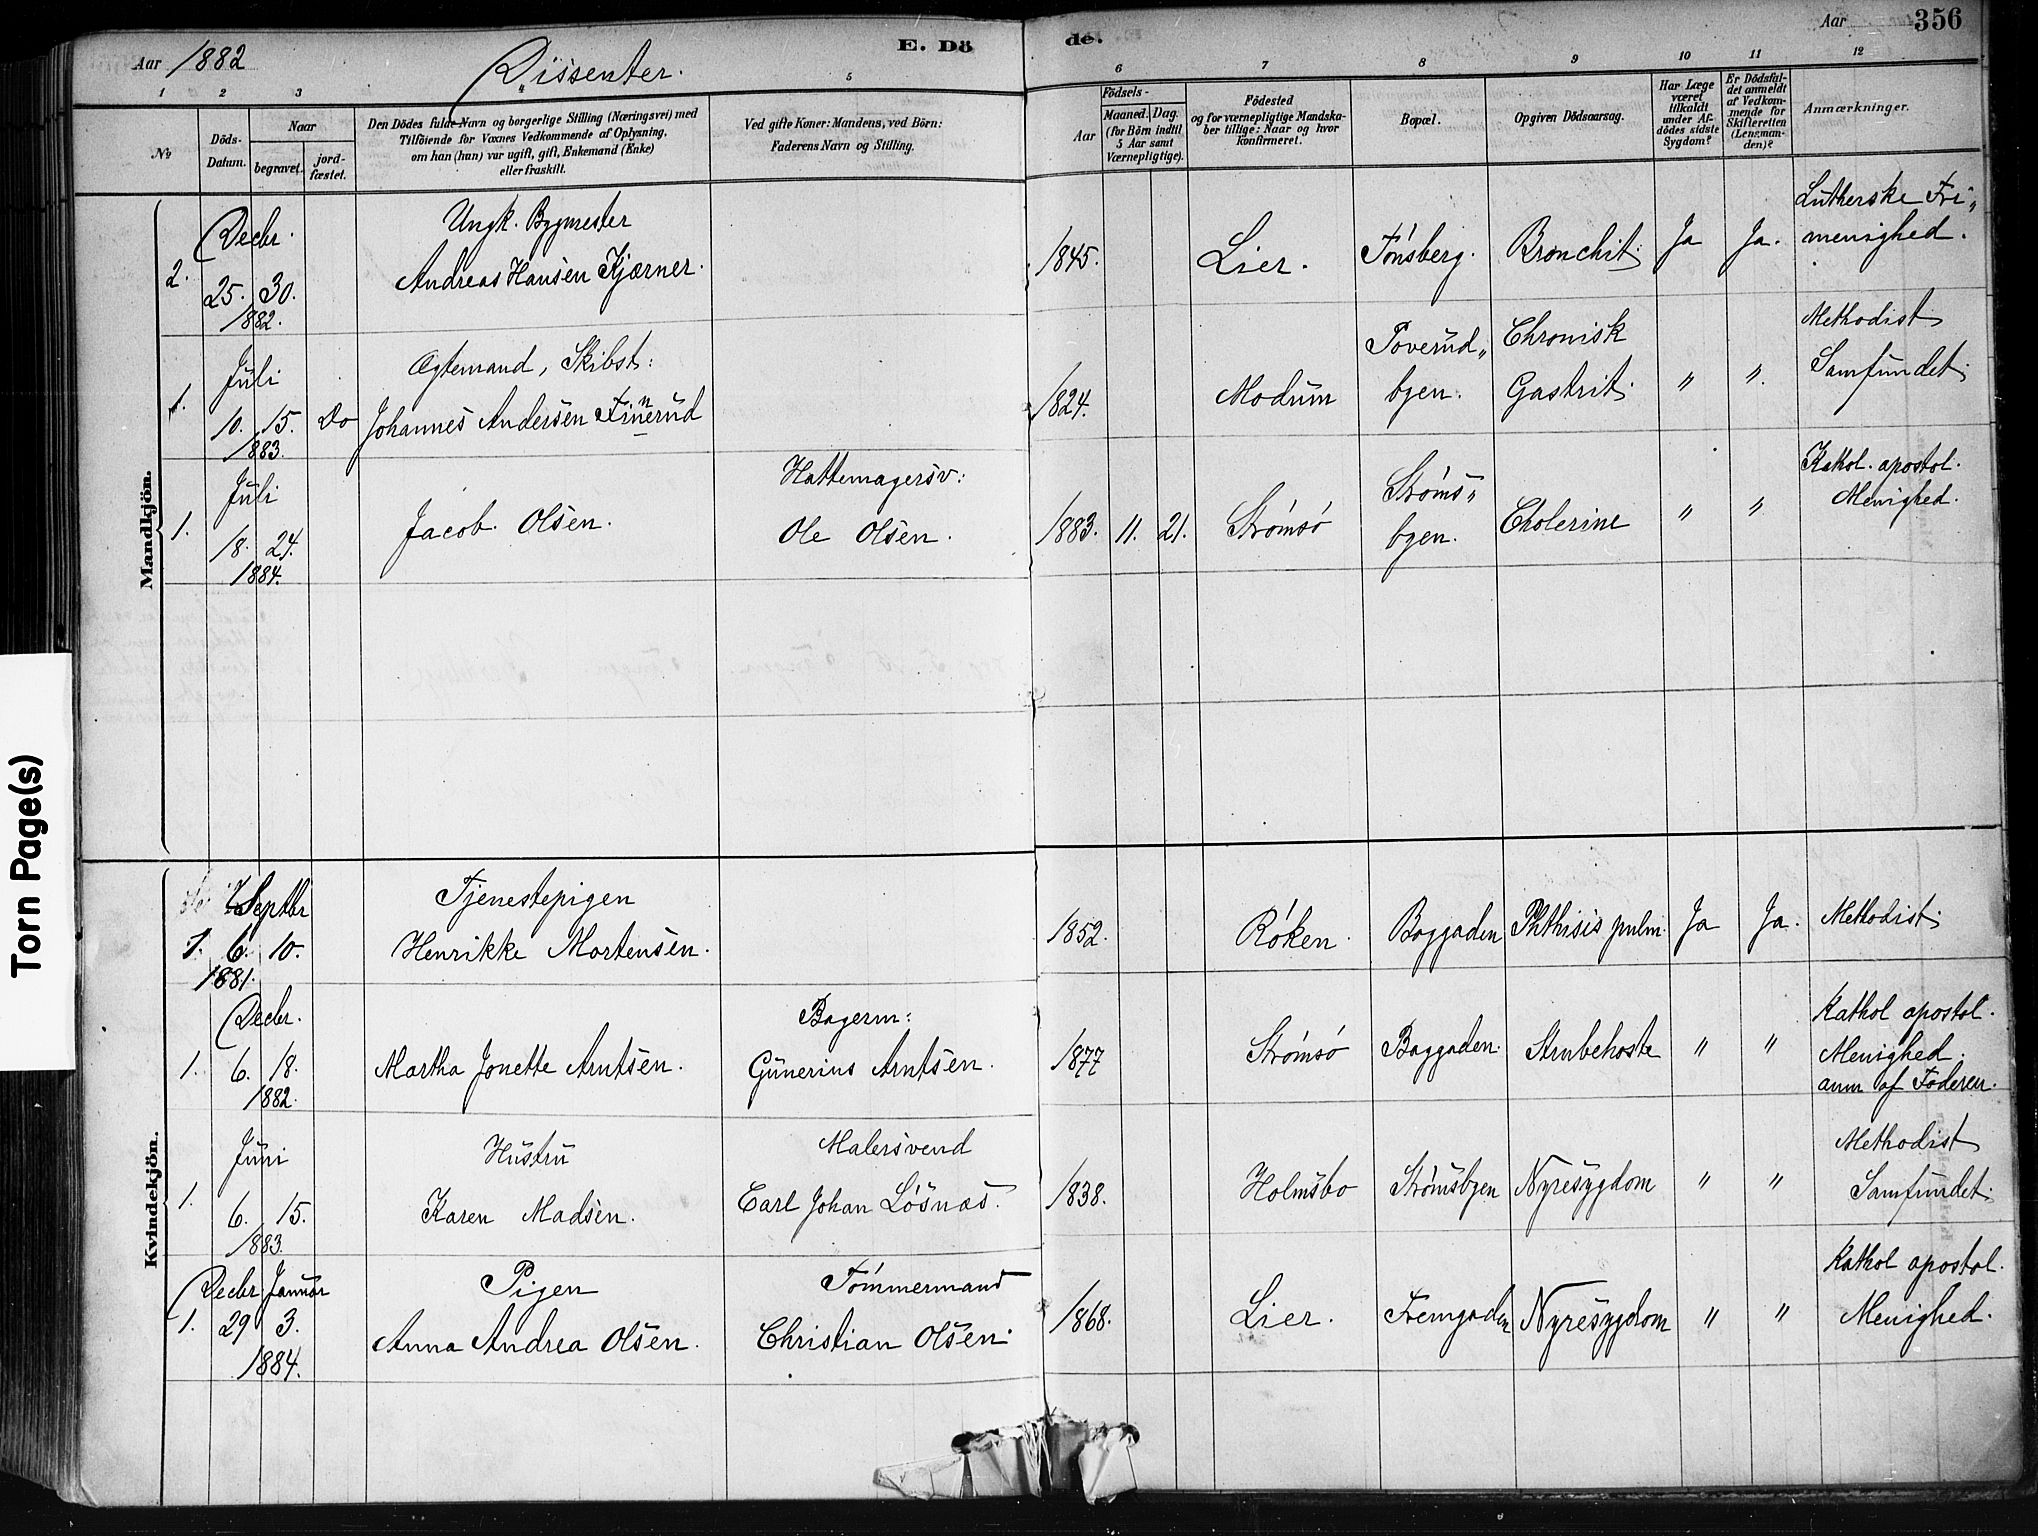 Aar 1882
Dissenter.
E. Dö
de.
Aar
356
1 2 3 4 5 6 7 8 9 10 11 12
No
Döds-
Datum.
Naar
begravet.
jord-
fæstet.
Den Dödes fulde Navn og borgerlige Stilling (Næringsvei) med
Tilföiende for Voxnes Vedkommende af Oplysning,
om han (hun) var ugift, gift, Enkemand (Enke)
eller fraskilt.
Ved gifte Koner: Mandens, ved Börn:
Faderens Navn og Stilling.
Födsels-
Aar
Maaned. Dag.
(for Börn indtil
5 Aar samt
Værnepligtige).
Födested
og for værnepligtige Mandska-
ber tillige: Naar og hvor
konfirmeret.
Bopæl.
Opgiven Dödsaarsag.
Har Læge
været
tilkaldt
under Af-
dödes sidste
Sygdom?
Er Dödsfal-
det anmeldt
af Vedkom-
mende for
Skifteretten
(Lensman-
den)?
Anmærkninger.
Mandkjön.
Decbr.
2. 25. 30.
1882.
Ungk. Bygmester
Andreas Hansen Kjærner.
1845. Lier. Tónsberg. Bronchit. Ja Ja.
Lutherske Fri„
menighed.
Juli
1. 10. 15. Do
1883.
Ægtemand, Skibst:
Johannes Andersen Finnerud
1824. Modum
Toverud„
bgen.
Chronisk
Gastrit. " "
Methodist
Samfundet.
Juli
1. 18. 24.
1884.
Jacob Olsen.
Hattemagersv:
Ole Olsen.
1883. 11. 21. Strómsó
Stróms„
bgen.
Cholerine " "
Kathol. apostol.
Menighed.
Kvindekjön.
Septbr
1. 6. 10.
1881.
Tjenestepigen
Henrikke Mortensen.
1852. Róken. Baggaden Phthisis pulm. Ja Ja. Methodist.
Decbr.
1. 6. 18.
1882.
Martha Jonette Arntsen.
Bagerm:
Gunerius Arntsen.
1877 Strómsó Baggaden. Strubehoste " "
Kathol apostol.
Menighed.
anm af Faderen.
Juni
1. 6. 15.
1883.
Hustru
Karen Madsen.
Malersvend
Carl Johan Lósnæs.
1838. Holmsbo Strómsbgen Nyresygdom " "
Methodist
Samfundet.
Decbr Januar
1. 29 3.
1884.
Pigen
Anna Andrea Olsen.
Tómmermand
Christian Olsen.
1868. Lier. Fremgaden Nyresygdom " "
Kathol apostol.
Menighed.
Torn Page(s)